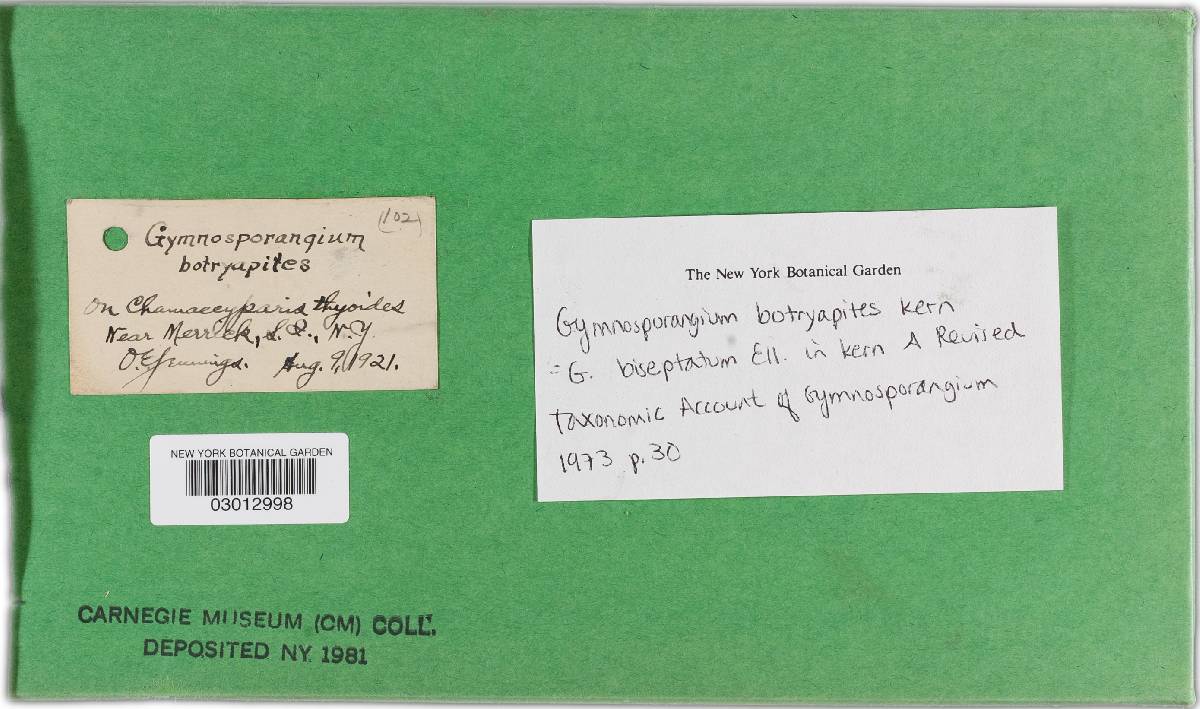 (102)
Gymnosporangium
botryapites
On Chamaecyparis thyoides
Near Merrick, L.I., N.Y.
O.E. Jennings. Aug. 9, 1921.
NEW YORK BOTANICAL GARDEN
03012998
CARNEGIE MUSEUM (CM) COLL.
DEPOSITED NY 1981
The New York Botanical Garden
Gymnosporangium botryapites Kern
= G. biseptatum Ell. in Kern A Revised
Taxonomic Account of Gymnosporangium
1973 p.30